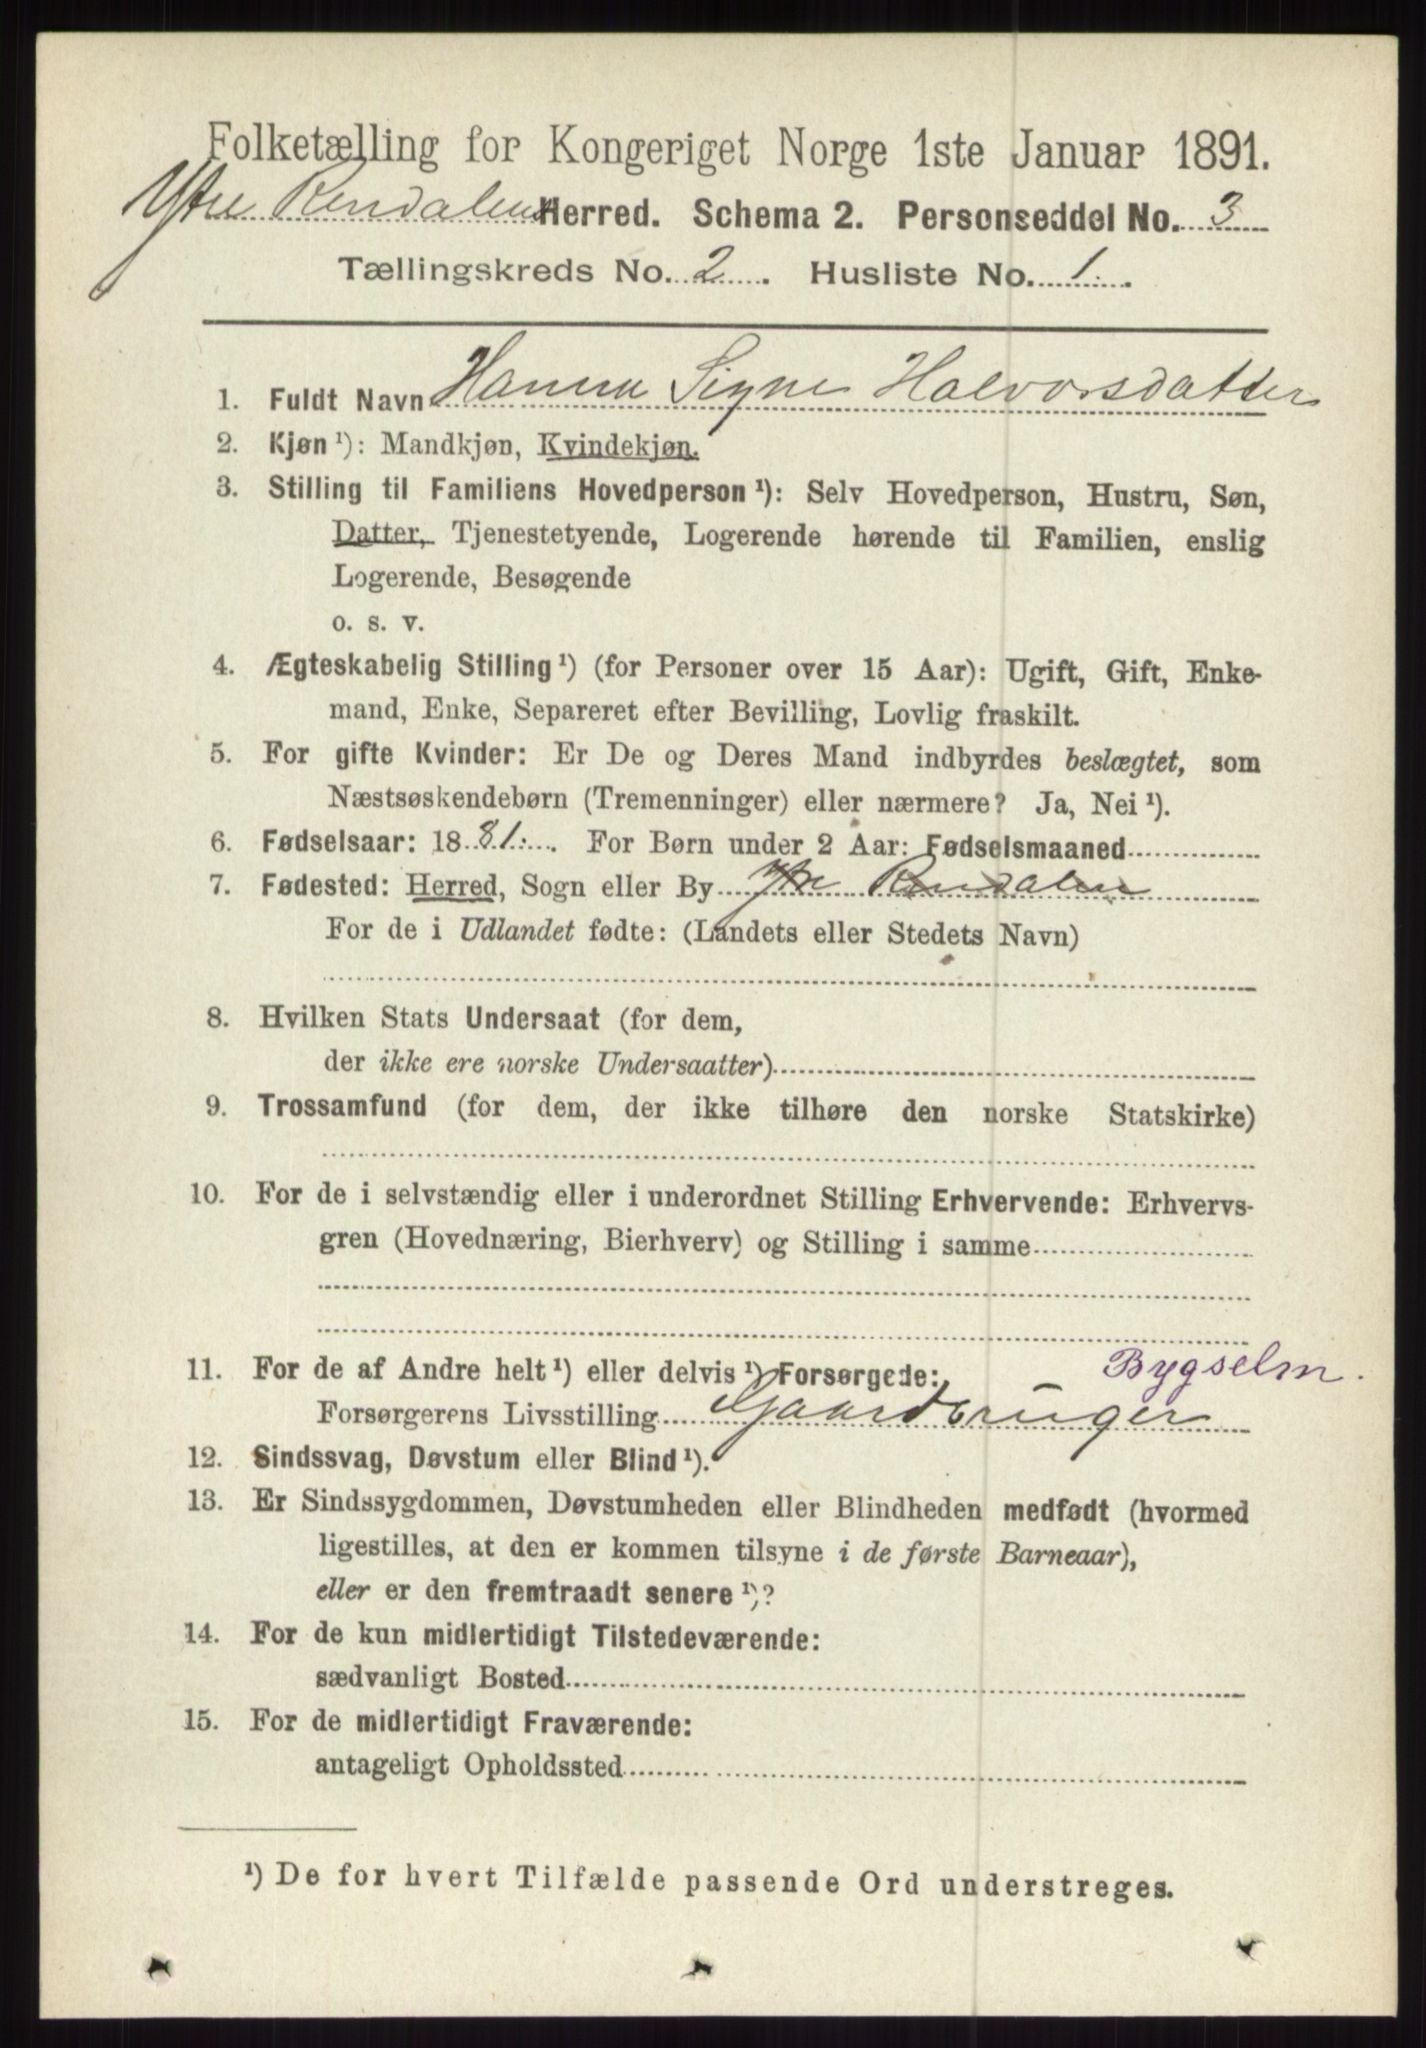 Folketælling for Kongeriget Norge 1ste Januar 1891.
Ytre Rendalens Herred. Schema 2. Personseddel No. 3
Tællingskreds No. 2. Husliste No. 1.
1. Fuldt Navn Hanna Signe Halvorsdatter
2. Kjøn ¹): Mandkjøn, Kvindekjøn.
3. Stilling til Familiens Hovedperson ¹): Selv Hovedperson, Hustru, Søn,
Datter, Tjenestetyende, Logerende hørende til Familien, enslig
Logerende, Besøgende
o. s. v.
4. Ægteskabelig Stilling ¹) (for Personer over 15 Aar): Ugift, Gift, Enke-
mand, Enke, Separeret efter Bevilling, Lovlig fraskilt.
5. For gifte Kvinder: Er De og Deres Mand indbyrdes beslægtet, som
Næstsøskendebørn (Tremenninger) eller nærmere? Ja, Nei ¹).
6. Fødselsaar: 1881. For Børn under 2 Aar: Fødselsmaaned
7. Fødested: Herred, Sogn eller By Ytre Rendalen
For de i Udlandet fødte: (Landets eller Stedets Navn)
8. Hvilken Stats Undersaat (for dem,
der ikke ere norske Undersaatter)
9. Trossamfund (for dem, der ikke tilhøre den norske Statskirke)
10. For de i selvstændig eller i underordnet Stilling Erhvervende: Erhvervs-
gren (Hovednæring, Bierhverv) og Stilling i samme
11. For de af Andre helt ¹) eller delvis ¹) Forsørgede: Bygselm.
Forsørgerens Livsstilling Gaardbruger
12. Sindssvag, Døvstum eller Blind ¹).
13. Er Sindssygdommen, Døvstumheden eller Blindheden medfødt (hvormed
ligestilles, at den er kommen tilsyne i de første Barneaar),
eller er den fremtraadt senere ¹)?
14. For de kun midlertidigt Tilstedeværende:
sædvanligt Bosted
15. For de midlertidigt Fraværende:
antageligt Opholdssted
¹) De for hvert Tilfælde passende Ord understreges.